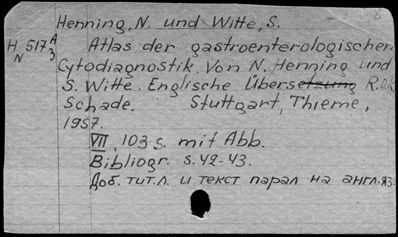 Henning, N. und Witte, S.
H 517 A/3
N
Atlas der gastroenterologischen
Cytodiagnostik. Von N. Henning und
S. Witte. Englische Übersetzung R.D.K.
Schade. Stuttgart, Thieme,
1957.
VII, 103 s. mit Abb.
Bibliogr. s. 42-43.
Доб. тит. л. и текст парал на англ. яз.